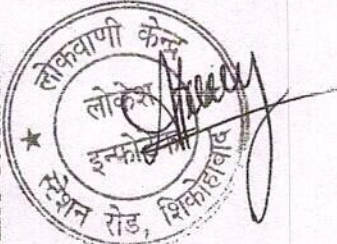 लोकवाणी केन्द्र
लोकेश
स्टेशन रोड, शिकोहाबाद